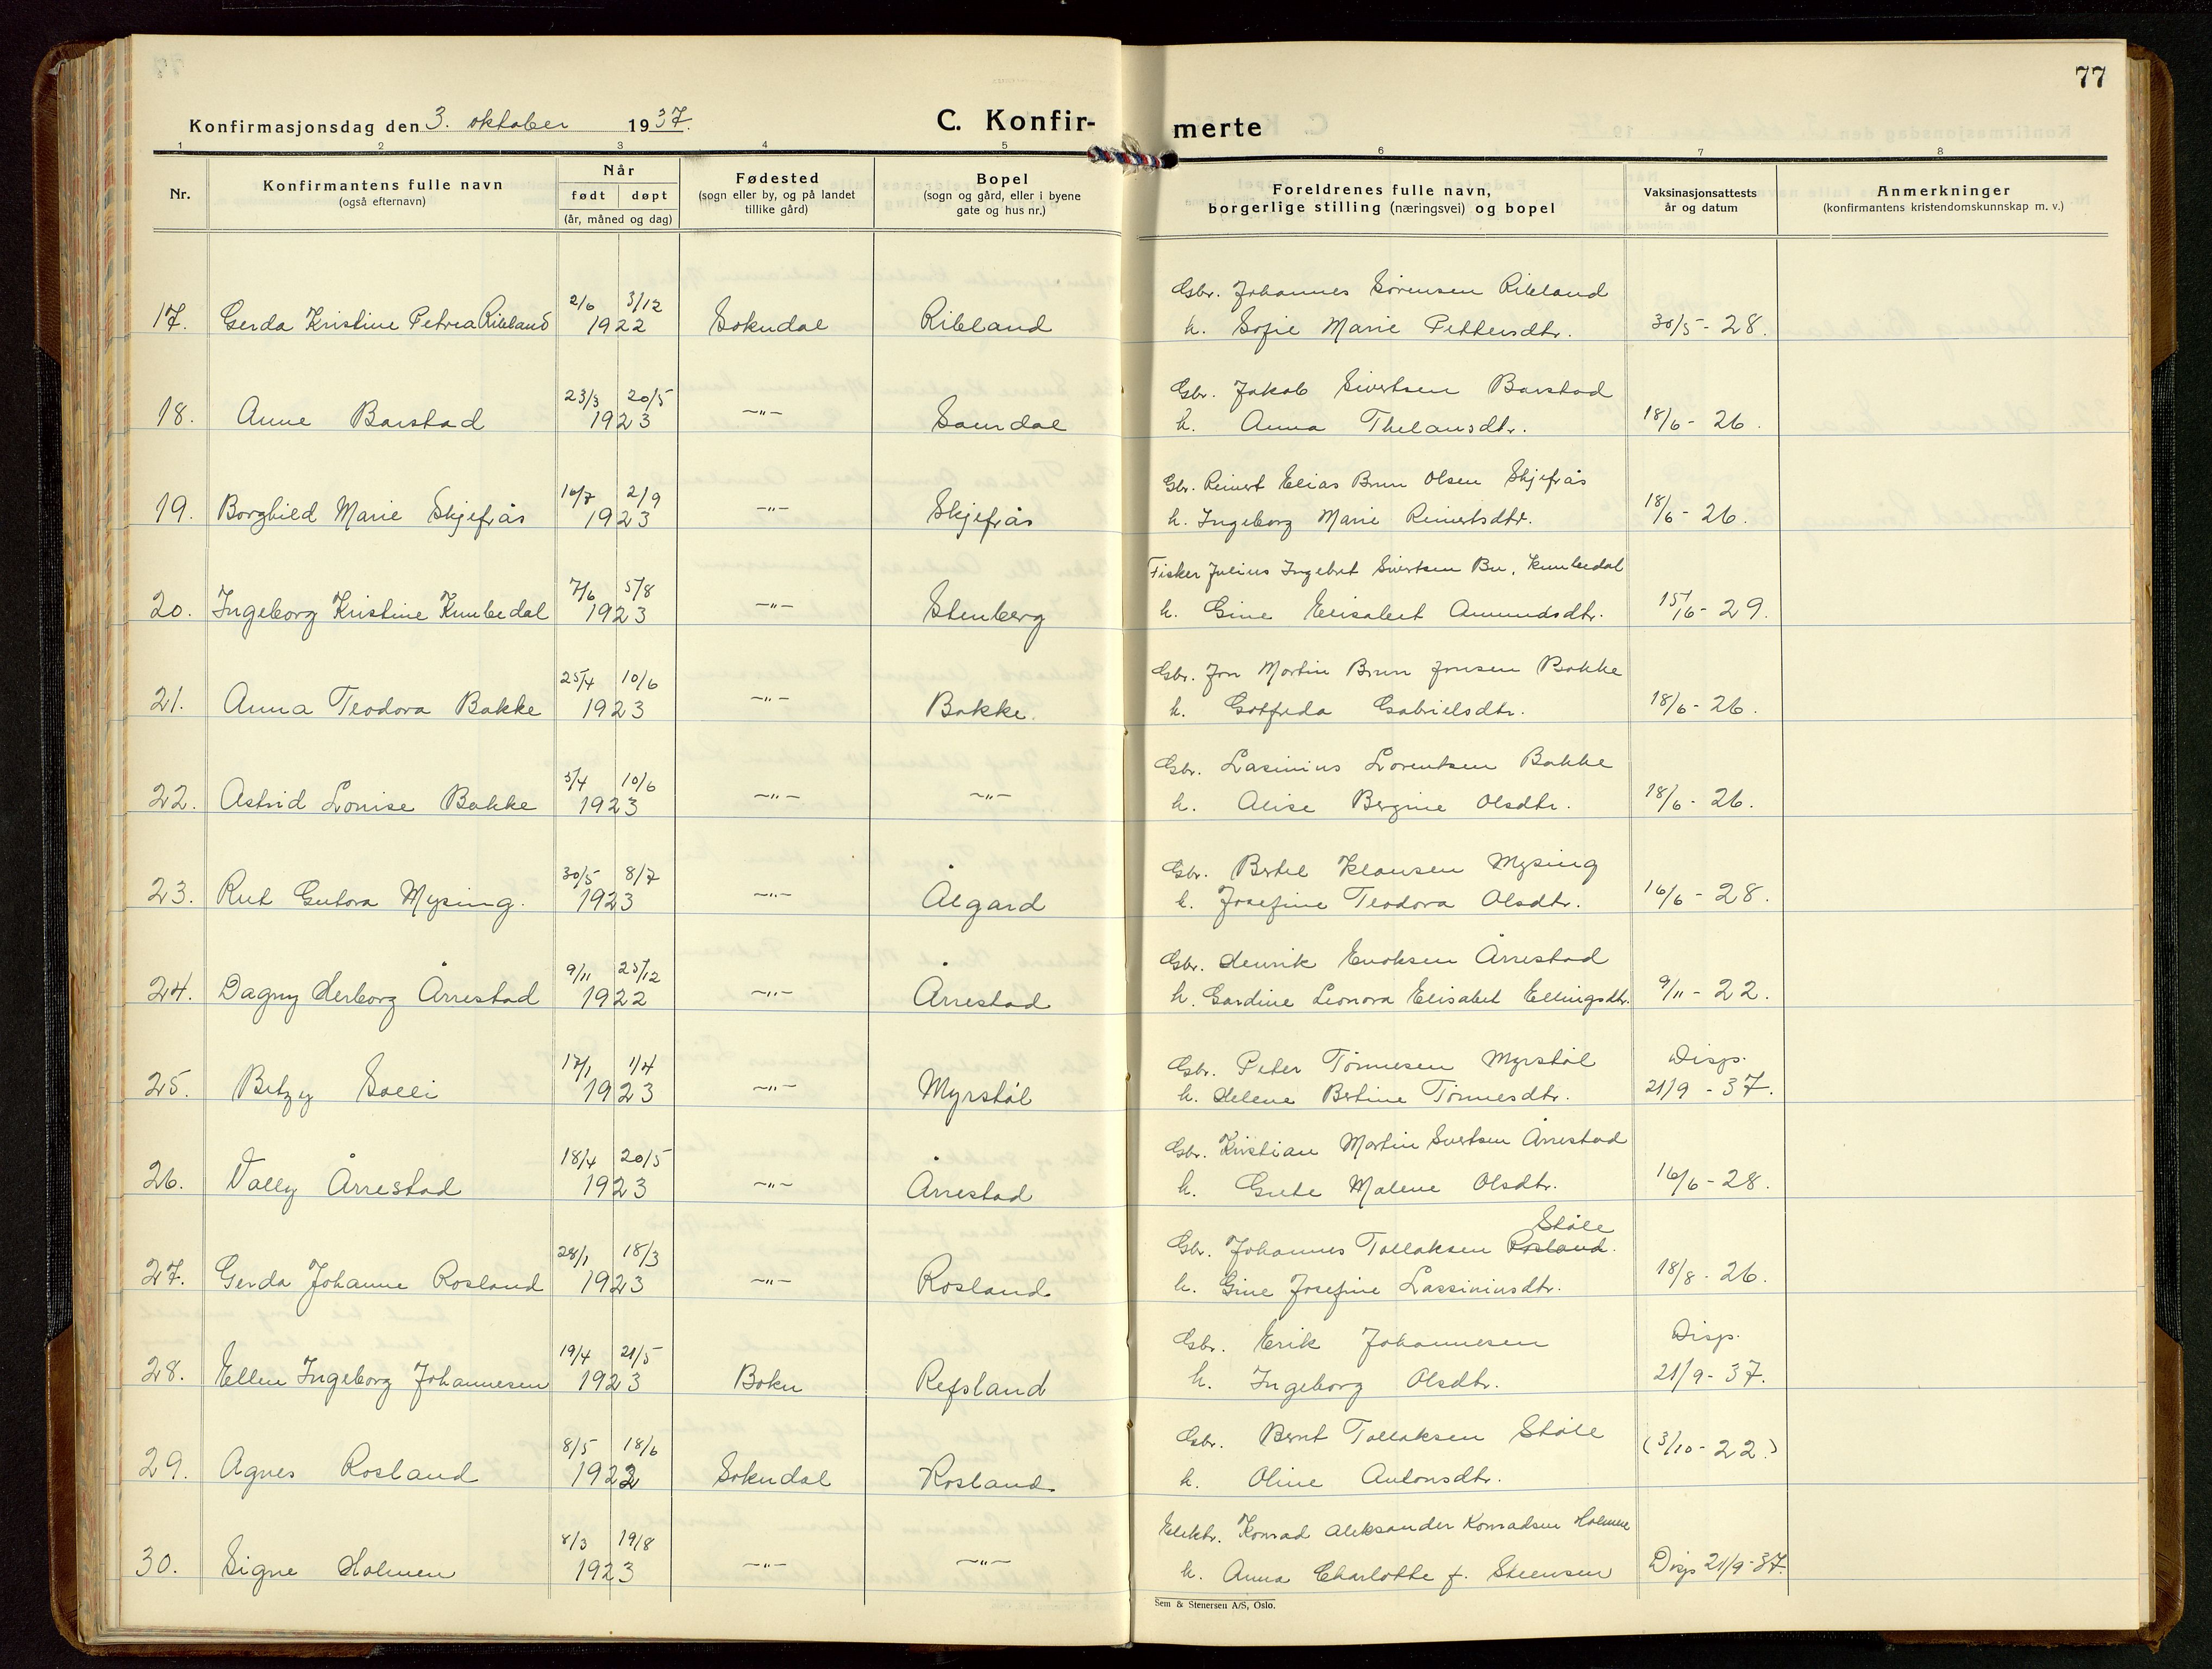 77
Konfirmasjonsdag den 3. oktober 1937.
C. Konfir-merte
1 2 3 4 5 6 7 8
Nr.
Konfirmantens fulle navn
(også efternavn)
Når
født døpt
(år, måned og dag)
Fødested
(sogn eller by, og på landet
tillike gård)
Bopel
(sogn og gård, eller i byene
gate og hus nr.)
Foreldrenes fulle navn,
borgerlige stilling (næringsvei) og bopel
Vaksinasjonsattests
år og datum
Anmerkninger
(konfirmantens kristendomskunnskap m. v.)
2/6 3/12 Gbr. Johannes Sørensen Ribland
17. Gerda Kristine Petrea Ribland 1922 Sokndal Ribland h. Sofie Marie Pettersdtr. 30/5 - 28.
23/3 20/5 Gbr. Jakob Sivertsen Barstad
18. Anne Barstad 1923 -"- Samdal h. Anna Thelausdtr. 18/6 - 26.
16/7 2/9 Gbr. Reinert Elias Brun Olsen Skjefrås
19. Borghild Marie Skjefrås 1923 -"- Skjefrås h. Ingeborg Marie Reinertsdtr. 18/6 - 26.
7/6 5/8 Fisker Julius Ingebret Sivertsen Bu, Knubedal
20. Ingeborg Kristine Knubedal 1923 -"- Stenberg h. Gine Elisabet Amundsdtr. 15/6 - 29.
25/4 10/6 Gbr. Jon Martin Brun Jonsen Bakke
21. Anna Teodora Bakke 1923 -"- Bakke. h. Gotfreda Gabrielsdtr. 18/6 - 26.
5/4 10/6 Gbr. Lasinius Lorentsen Bakke
22. Astrid Louise Bakke 1923 -"- -"- h. Alise Bergine Olsdtr. 18/6 - 26.
30/5 8/7 Gbr. Bertel Klausen Mysing
23. Rut Gutora Mysing. 1923 -"- Ålgard h. Josefine Teodora Olsdtr. 16/6 - 28.
9/11 25/12 Gbr. Henrik Enoksen Årrestad
24. Dagny Herborg Årrestad 1922 -"- Årrestad h. Gardine Leonora Elisabet Ellingsdtr. 9/11 - 22.
17/1 1/4 Gbr. Peter Tønnesen Myrstøl Disp.
25. Betzy Solli 1923 -"- Myrstøl h. Helene Bertine Tønnesdtr. 21/9 - 37.
18/4 20/5 Gbr. Kristian Martin Sivertsen Årrestad
26. Vally Årrestad 1923 -"- Årrestad h. Grete Malene Olsdtr. 16/6 - 28.
Støle
28/1 18/3 Gbr. Johannes Tollaksen Rosland.
27. Gerda Johanne Rosland 1923 -"- Rosland h. Gine Josefine Lassiniusdtr. 18/8 - 26.
19/4 21/5 Gbr. Erik Johannesen Disp.
28. Ellen Ingeborg Johannesen 1923 Bokn Refsland h. Ingeborg Olsdtr. 21/9 - 37.
8/5 18/6 Gbr. Bernt Tollaksen Støle (3/10 - 22?)
29. Agnes Rosland 1922 Sokndal Rosland h. Oline Antonsdtr.
8/3 19/8 Elektr. Konrad Aleksander Konradsen Holmen
30. Signe Holmen 1923 -"- -"- h. Anna Charlotte f. Steensen Disp 21/9 - 37.
Sem & Stenersen A/S, Oslo.